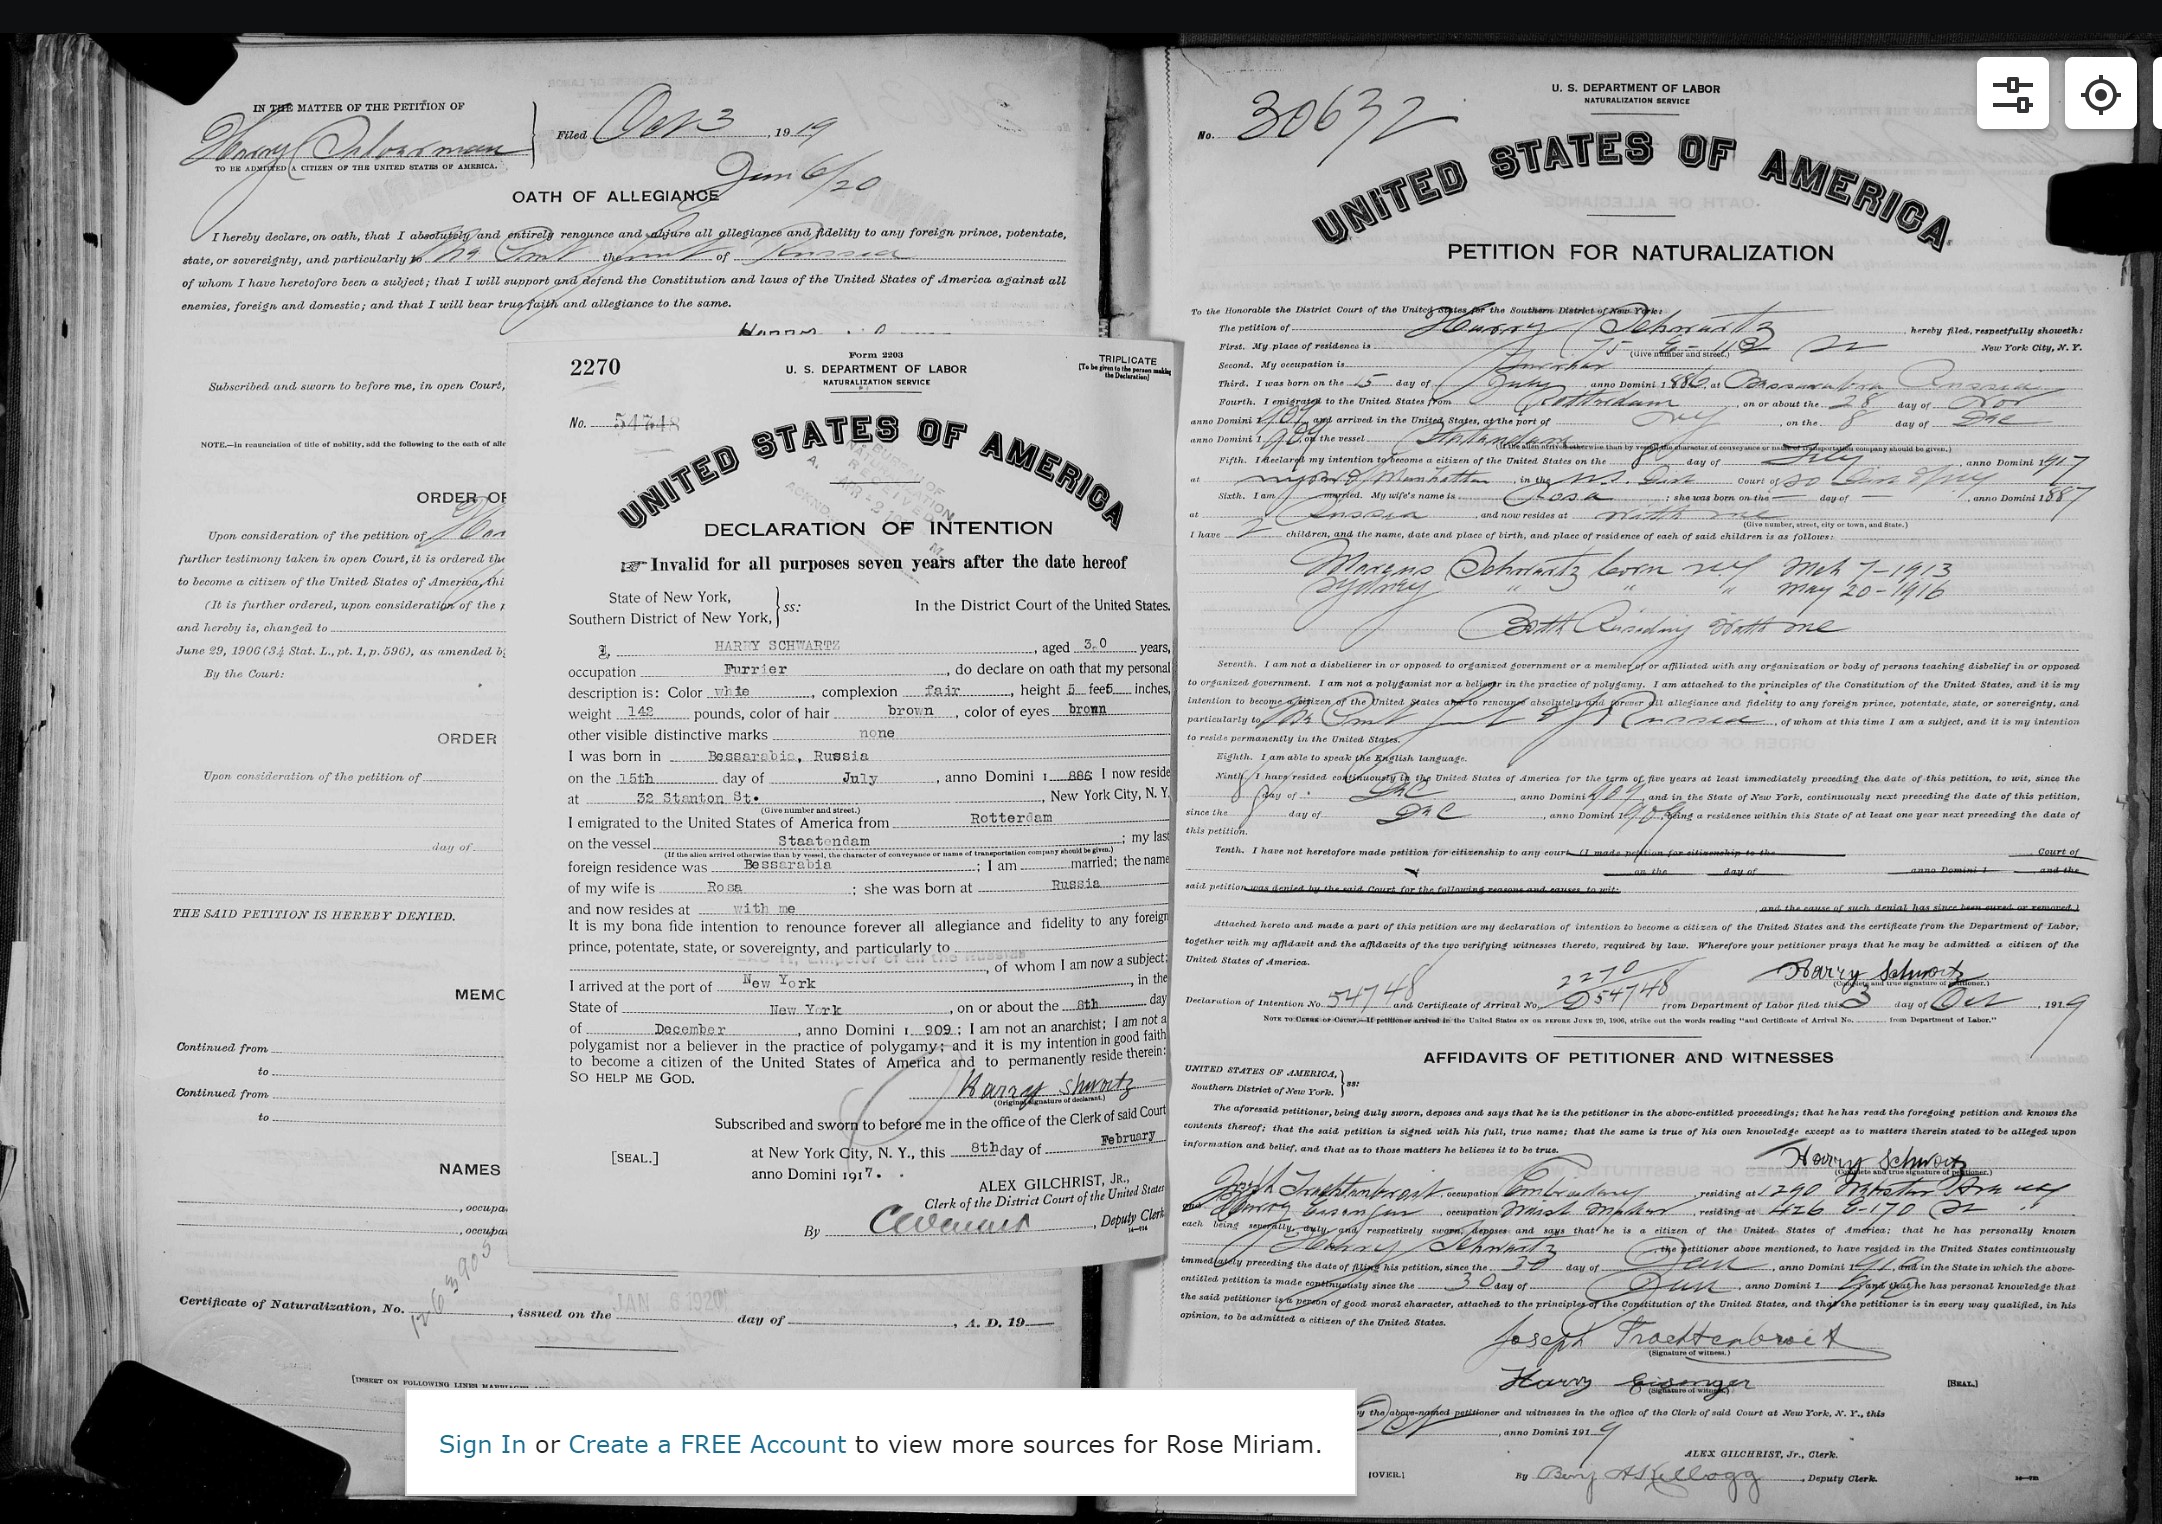 IN THE MATTER OF THE PETITION OF
Harry Silverman
TO BE ADMITTED A CITIZEN OF THE UNITED STATES OF AMERICA.
Filed Oct 3, 1919
Jan 6/20
OATH OF ALLEGIANCE
I hereby declare, on oath, that I absolutely and entirely renounce and abjure all allegiance and fidelity to any foreign prince, potentate,
state, or sovereignty, and particularly to the of Russia
of whom I have heretofore been a subject; that I will support and defend the Constitution and laws of the United States of America against all
enemies, foreign and domestic; and that I will bear true faith and allegiance to the same.
Subscribed and sworn to before me, in open Court,
NOTE.—In renunciation of title of nobility, add the following to the oath of alle
ORDER OF
Upon consideration of the petition of
further testimony taken in open Court, it is ordered the
to become a citizen of the United States of America, thi
(It is further ordered, upon consideration of the p
and hereby is, changed to
June 29, 1906 (34 Stat. L., pt. 1, p. 596), as amended by
By the Court:
ORDER
Upon consideration of the petition of
day of
THE SAID PETITION IS HEREBY DENIED.
MEMO
Continued from
to
Continued from
to
NAMES
, occupa
, occupa
Certificate of Naturalization, No. , issued on the JAN 6 1920 day of , A. D. 19
2270
Form 2203
U. S. DEPARTMENT OF LABOR
NATURALIZATION SERVICE
TRIPLICATE
[To be given to the person making
the Declaration]
No. 54748
UNITED STATES OF AMERICA
DECLARATION OF INTENTION
☞ Invalid for all purposes seven years after the date hereof
State of New York,
Southern District of New York, } ss:
In the District Court of the United States.
I, HARRY SCHWARTZ, aged 30 years,
occupation Furrier, do declare on oath that my personal
description is: Color white, complexion fair, height 5 feet 5 inches,
weight 142 pounds, color of hair brown, color of eyes brown
other visible distinctive marks none
I was born in Bessarabia, Russia
on the 15th day of July, anno Domini 1 886 I now reside
at 32 Stanton St., New York City, N. Y.
(Give number and street.)
I emigrated to the United States of America from Rotterdam
on the vessel Staatendam; my last
(If the alien arrived otherwise than by vessel, the character of conveyance or name of transportation company should be given.)
foreign residence was Bessarabia; I am married; the name
of my wife is Rosa; she was born at Russia
and now resides at with me
It is my bona fide intention to renounce forever all allegiance and fidelity to any foreign
prince, potentate, state, or sovereignty, and particularly to
Emperor of all the Russias, of whom I am now a subject;
I arrived at the port of New York, in the
State of New York, on or about the 8th day
of December, anno Domini 1 909; I am not an anarchist; I am not a
polygamist nor a believer in the practice of polygamy; and it is my intention in good faith
to become a citizen of the United States of America and to permanently reside therein:
SO HELP ME GOD.
Harry Shwartz
(Original signature of declarant.)
Subscribed and sworn to before me in the office of the Clerk of said Court
[SEAL.]
at New York City, N. Y., this 8th day of February
anno Domini 1917.
ALEX GILCHRIST, JR.,
Clerk of the District Court of the United States
By , Deputy Clerk
U. S. DEPARTMENT OF LABOR
NATURALIZATION SERVICE
No. 30632
UNITED STATES OF AMERICA
PETITION FOR NATURALIZATION
To the Honorable the District Court of the United States for the Southern District of New York:
The petition of Harry Schwartz, hereby filed, respectfully showeth:
First. My place of residence is 75 E-113 St New York City, N. Y.
(Give number and street.)
Second. My occupation is Furrier
Third. I was born on the 15 day of July, anno Domini 1886, at Bessarabia Russia
Fourth. I emigrated to the United States from Rotterdam, on or about the 28 day of Nov
anno Domini 1909, and arrived in the United States, at the port of NY, on the 8 day of Dec
anno Domini 1909, on the vessel Statendam
(If the alien arrived otherwise than by vessel, the character of conveyance or name of transportation company should be given.)
Fifth. I declared my intention to become a citizen of the United States on the 8 day of , anno Domini 1917
at Manhattan, in the U.S. Dist Court of So Dist NY
Sixth. I am married. My wife's name is Rosa; she was born on the — day of —, anno Domini 1887
at Russia, and now resides at with me
(Give number, street, city or town, and State.)
I have 2 children, and the name, date and place of birth, and place of residence of each of said children is as follows:
Marcus Schwartz born NY Mch 7-1913
Sydney " " " May 20-1916
Both Residing With me
Seventh. I am not a disbeliever in or opposed to organized government or a member of or affiliated with any organization or body of persons teaching disbelief in or opposed
to organized government. I am not a polygamist nor a believer in the practice of polygamy. I am attached to the principles of the Constitution of the United States, and it is my
intention to become a citizen of the United States and to renounce absolutely and forever all allegiance and fidelity to any foreign prince, potentate, state, or sovereignty, and
particularly to of Russia, of whom at this time I am a subject, and it is my intention
to reside permanently in the United States.
Eighth. I am able to speak the English language.
Ninth. I have resided continuously in the United States of America for the term of five years at least immediately preceding the date of this petition, to wit, since the
8 day of Dec, anno Domini 1909, and in the State of New York, continuously next preceding the date of this petition,
since the 8 day of Dec, anno Domini 1909, being a residence within this State of at least one year next preceding the date of
this petition.
Tenth. I have not heretofore made petition for citizenship to any court. (I made petition for citizenship to the Court of
on the day of anno Domini 1 and the
said petition was denied by the said Court for the following reasons and causes, to wit:
, and the cause of such denial has since been cured or removed.)
Attached hereto and made a part of this petition are my declaration of intention to become a citizen of the United States and the certificate from the Department of Labor,
together with my affidavit and the affidavits of the two verifying witnesses thereto, required by law. Wherefore your petitioner prays that he may be admitted a citizen of the
United States of America.
Harry Schwartz
(Complete and true signature of petitioner.)
2270
Declaration of Intention No. 54748 and Certificate of Arrival No. D54748 from Department of Labor filed this 3 day of Oct, 1919
NOTE TO CLERK OF COURT.—If petitioner arrived in the United States ON OR BEFORE JUNE 29, 1906, strike out the words reading "and Certificate of Arrival No. from Department of Labor."
AFFIDAVITS OF PETITIONER AND WITNESSES
UNITED STATES OF AMERICA,
Southern District of New York. } ss:
The aforesaid petitioner, being duly sworn, deposes and says that he is the petitioner in the above-entitled proceedings; that he has read the foregoing petition and knows the
contents thereof; that the said petition is signed with his full, true name; that the same is true of his own knowledge except as to matters therein stated to be alleged upon
information and belief, and that as to those matters he believes it to be true.
Harry Schwartz
(Complete and true signature of petitioner.)
Joseph Trachtenbroit, occupation Embroidery, residing at 1290 Webster Ave NY
and Harry Eisenger, occupation Waist maker, residing at 426 E-170 St "
each being severally, duly, and respectively sworn, deposes and says that he is a citizen of the United States of America; that he has personally known
Harry Schwartz, the petitioner above mentioned, to have resided in the United States continuously
immediately preceding the date of filing his petition, since the 30 day of Jan, anno Domini 1 , and in the State in which the above-
entitled petition is made continuously since the 30 day of Jan, anno Domini 1 , and that he has personal knowledge that
the said petitioner is a person of good moral character, attached to the principles of the Constitution of the United States, and that the petitioner is in every way qualified, in his
opinion, to be admitted a citizen of the United States.
Joseph Trachtenbroit
(Signature of witness.)
Harry Eisenger
(Signature of witness.)
[SEAL.]
by the above-named petitioner and witnesses in the office of the Clerk of said Court at New York, N. Y., this
Oct, anno Domini 1919
ALEX GILCHRIST, Jr., Clerk.
[OVER.]
By Benj A Kellogg, Deputy Clerk.
Sign In or Create a FREE Account to view more sources for Rose Miriam.